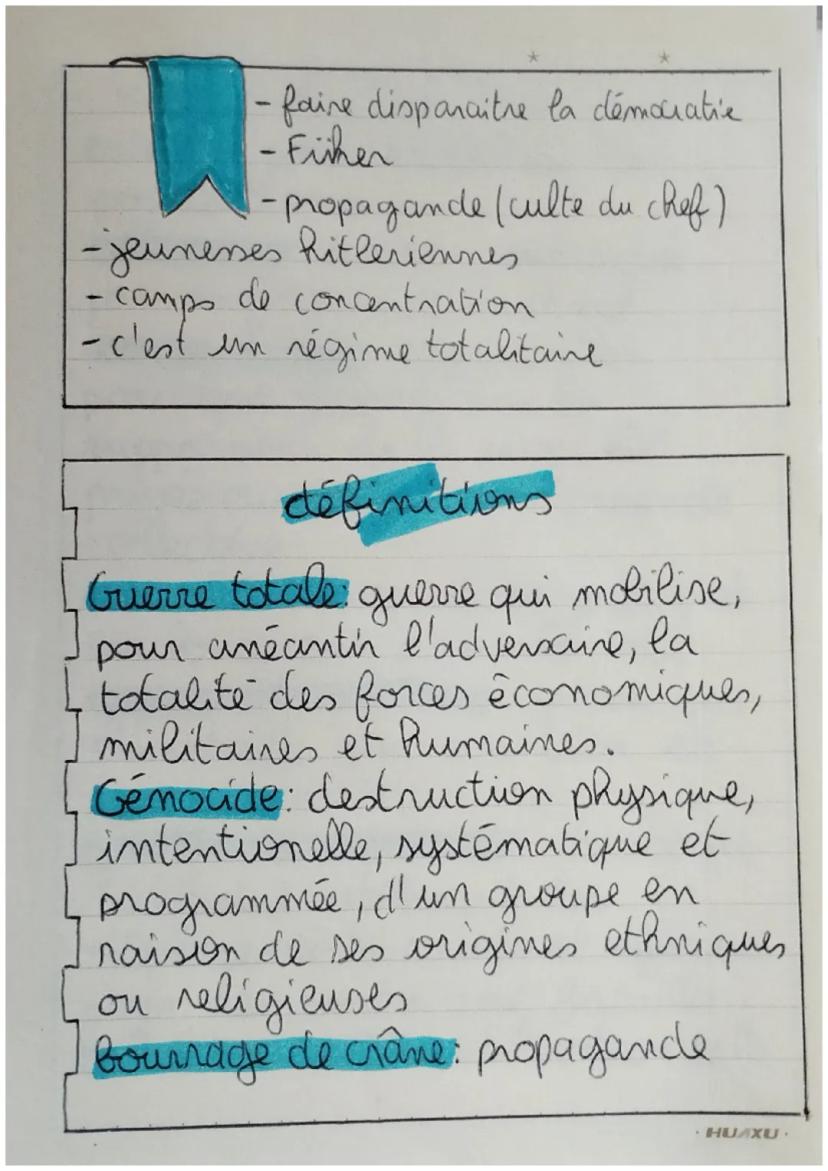 - faire disparaitre la démocratie
- Fürher
- propagande (culte du chef)
- jeunesses hitleriennes
- camps de concentration
- c'est un régime totalitaire
définitions
Guerre totale: guerre qui mobilise,
pour anéantir l'adversaire, la
totalité des forces économiques,
militaires et humaines.
Génocide: destruction physique,
intentionelle, systématique et
programmée, d'un groupe en
raison de ses origines ethniques
ou religieuses
bourrage de crâne: propagande
HUAXU